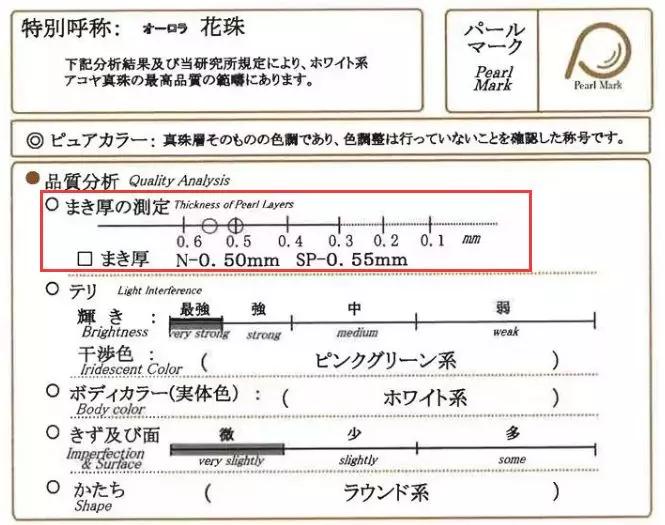 特別呼称： オーロラ 花珠
下記分析結果及び当研究所規定により、ホワイト系
アコヤ真珠の最高品質の範疇にあります。
パール
マーク
Pearl
Mark
Pearl Mark
◎ ピュアカラー： 真珠層そのものの色調であり、色調整は行っていないことを確認した称号です。
● 品質分析 Quality Analysis
○ まき厚の測定 Thickness of Pearl Layers
0.6 0.5 0.4 0.3 0.2 0.1 mm
□ まき厚 N-0.50mm SP-0.55mm
○ テリ Light Interference
輝き： 最強 強 中 弱
Brightness very strong strong medium weak
干渉色： ( ピンクグリーン系 )
Iridescent Color
○ ボディカラー(実体色)： ( ホワイト系 )
Body color
○ きず及び面 微 少 多
Imperfection & Surface very slightly slightly some
○ かたち ( ラウンド系 )
Shape